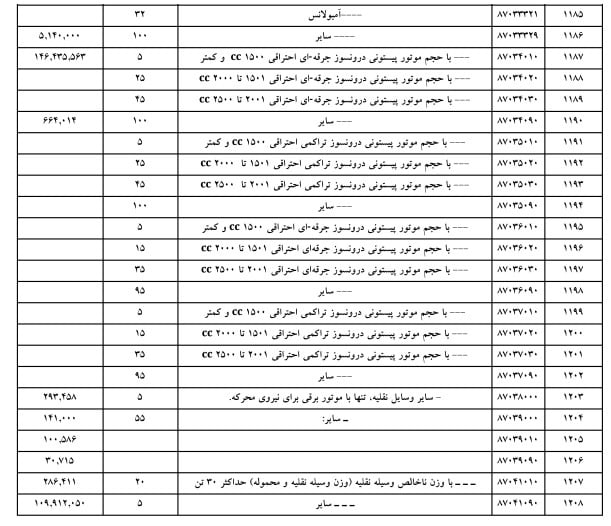 ۱۱۸۵ ۸۷۰۳۳۳۲۱ ----آمبولانس ۳۲
۱۱۸۶ ۸۷۰۳۳۳۲۹ ---- سایر ۱۰۰ ۵,۱۴۰,۰۰۰
۱۱۸۷ ۸۷۰۳۴۰۱۰ --- با حجم موتور پیستونی درونسوز جرقه-ای احتراقی ۱۵۰۰ cc و کمتر ۵ ۱۴۶,۴۳۵,۵۶۳
۱۱۸۸ ۸۷۰۳۴۰۲۰ --- با حجم موتور پیستونی درونسوز جرقه-ای احتراقی ۱۵۰۱ تا ۲۰۰۰ cc ۲۵
۱۱۸۹ ۸۷۰۳۴۰۳۰ --- با حجم موتور پیستونی درونسوز جرقه-ای احتراقی ۲۰۰۱ تا ۲۵۰۰ cc ۴۵
۱۱۹۰ ۸۷۰۳۴۰۹۰ --- سایر ۱۰۰ ۶۶۴,۰۱۴
۱۱۹۱ ۸۷۰۳۵۰۱۰ --- با حجم موتور پیستونی درونسوز تراکمی احتراقی ۱۵۰۰ cc و کمتر ۵
۱۱۹۲ ۸۷۰۳۵۰۲۰ --- با حجم موتور پیستونی درونسوز تراکمی احتراقی ۱۵۰۱ تا ۲۰۰۰ cc ۲۵
۱۱۹۳ ۸۷۰۳۵۰۳۰ --- با حجم موتور پیستونی درونسوز تراکمی احتراقی ۲۰۰۱ تا ۲۵۰۰ cc ۴۵
۱۱۹۴ ۸۷۰۳۵۰۹۰ --- سایر ۱۰۰
۱۱۹۵ ۸۷۰۳۶۰۱۰ --- با حجم موتور پیستونی درونسوز جرقه-ای احتراقی ۱۵۰۰ cc و کمتر ۵
۱۱۹۶ ۸۷۰۳۶۰۲۰ --- با حجم موتور پیستونی درونسوز جرقه‌ای احتراقی ۱۵۰۱ تا ۲۰۰۰ cc ۱۵
۱۱۹۷ ۸۷۰۳۶۰۳۰ --- با حجم موتور پیستونی درونسوز جرقه‌ای احتراقی ۲۰۰۱ تا ۲۵۰۰ cc ۳۵
۱۱۹۸ ۸۷۰۳۶۰۹۰ --- سایر ۹۵
۱۱۹۹ ۸۷۰۳۷۰۱۰ --- با حجم موتور پیستونی درونسوز تراکمی احتراقی ۱۵۰۰ cc و کمتر ۵
۱۲۰۰ ۸۷۰۳۷۰۲۰ --- با حجم موتور پیستونی درونسوز تراکمی احتراقی ۱۵۰۱ تا ۲۰۰۰ cc ۱۵
۱۲۰۱ ۸۷۰۳۷۰۳۰ --- با حجم موتور پیستونی درونسوز تراکمی احتراقی ۲۰۰۱ تا ۲۵۰۰ cc ۳۵
۱۲۰۲ ۸۷۰۳۷۰۹۰ --- سایر ۹۵
۱۲۰۳ ۸۷۰۳۸۰۰۰ - سایر وسایل نقلیه، تنها با موتور برقی برای نیروی محرکه. ۵ ۲۹۳,۴۵۸
۱۲۰۴ ۸۷۰۳۹۰۰۰ ـ سایر: ۵۵ ۱۴۱,۰۰۰
۱۲۰۵ ۸۷۰۳۹۰۱۰ ۱۰۰,۵۸۶
۱۲۰۶ ۸۷۰۳۹۰۹۰ ۳۰,۷۱۵
۱۲۰۷ ۸۷۰۴۱۰۱۰ ـ ـ ـ با وزن ناخالص وسیله نقلیه (وزن وسیله نقلیه و محموله) حداکثر ۳۰ تن ۲۰ ۲۸۶,۴۱۱
۱۲۰۸ ۸۷۰۴۱۰۹۰ ـ ـ ـ سایر ۵ ۱۰۹,۹۱۲,۰۵۰